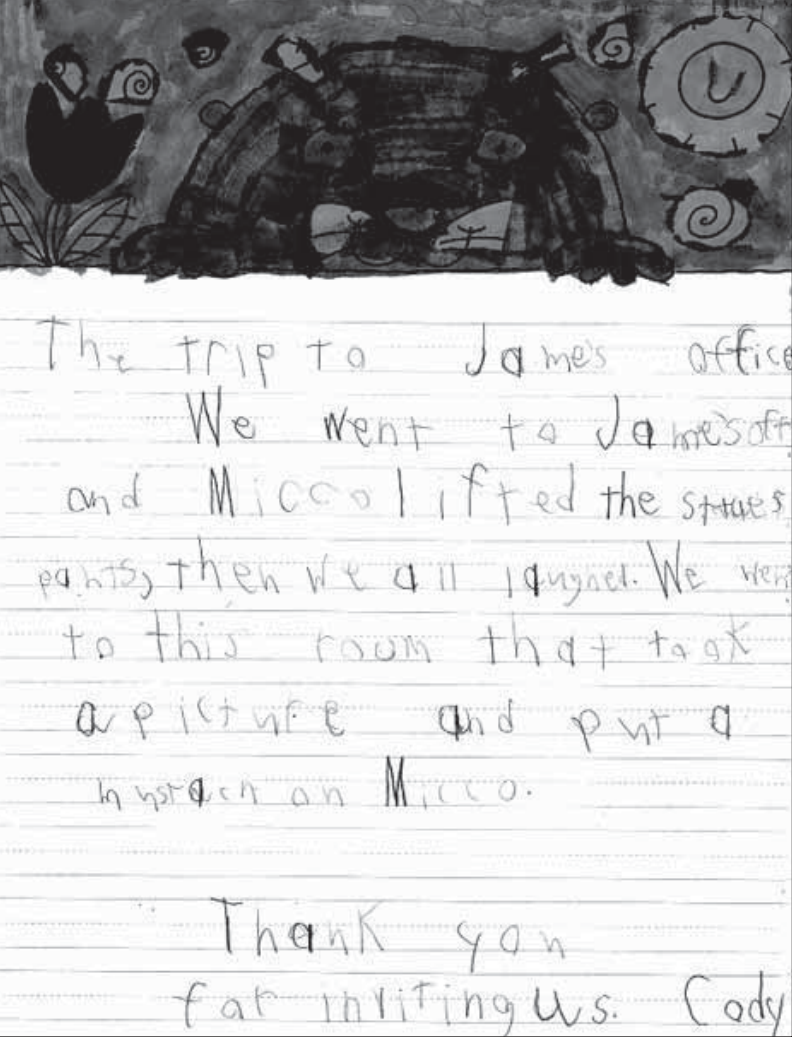 The trip to Jame's office
We went to Jame's off
and Micco lifted the
pants, then we all laughed. We went
to this room that took
a picture and put a
mustach on Micco.
Thank you
for inviting us. Cody